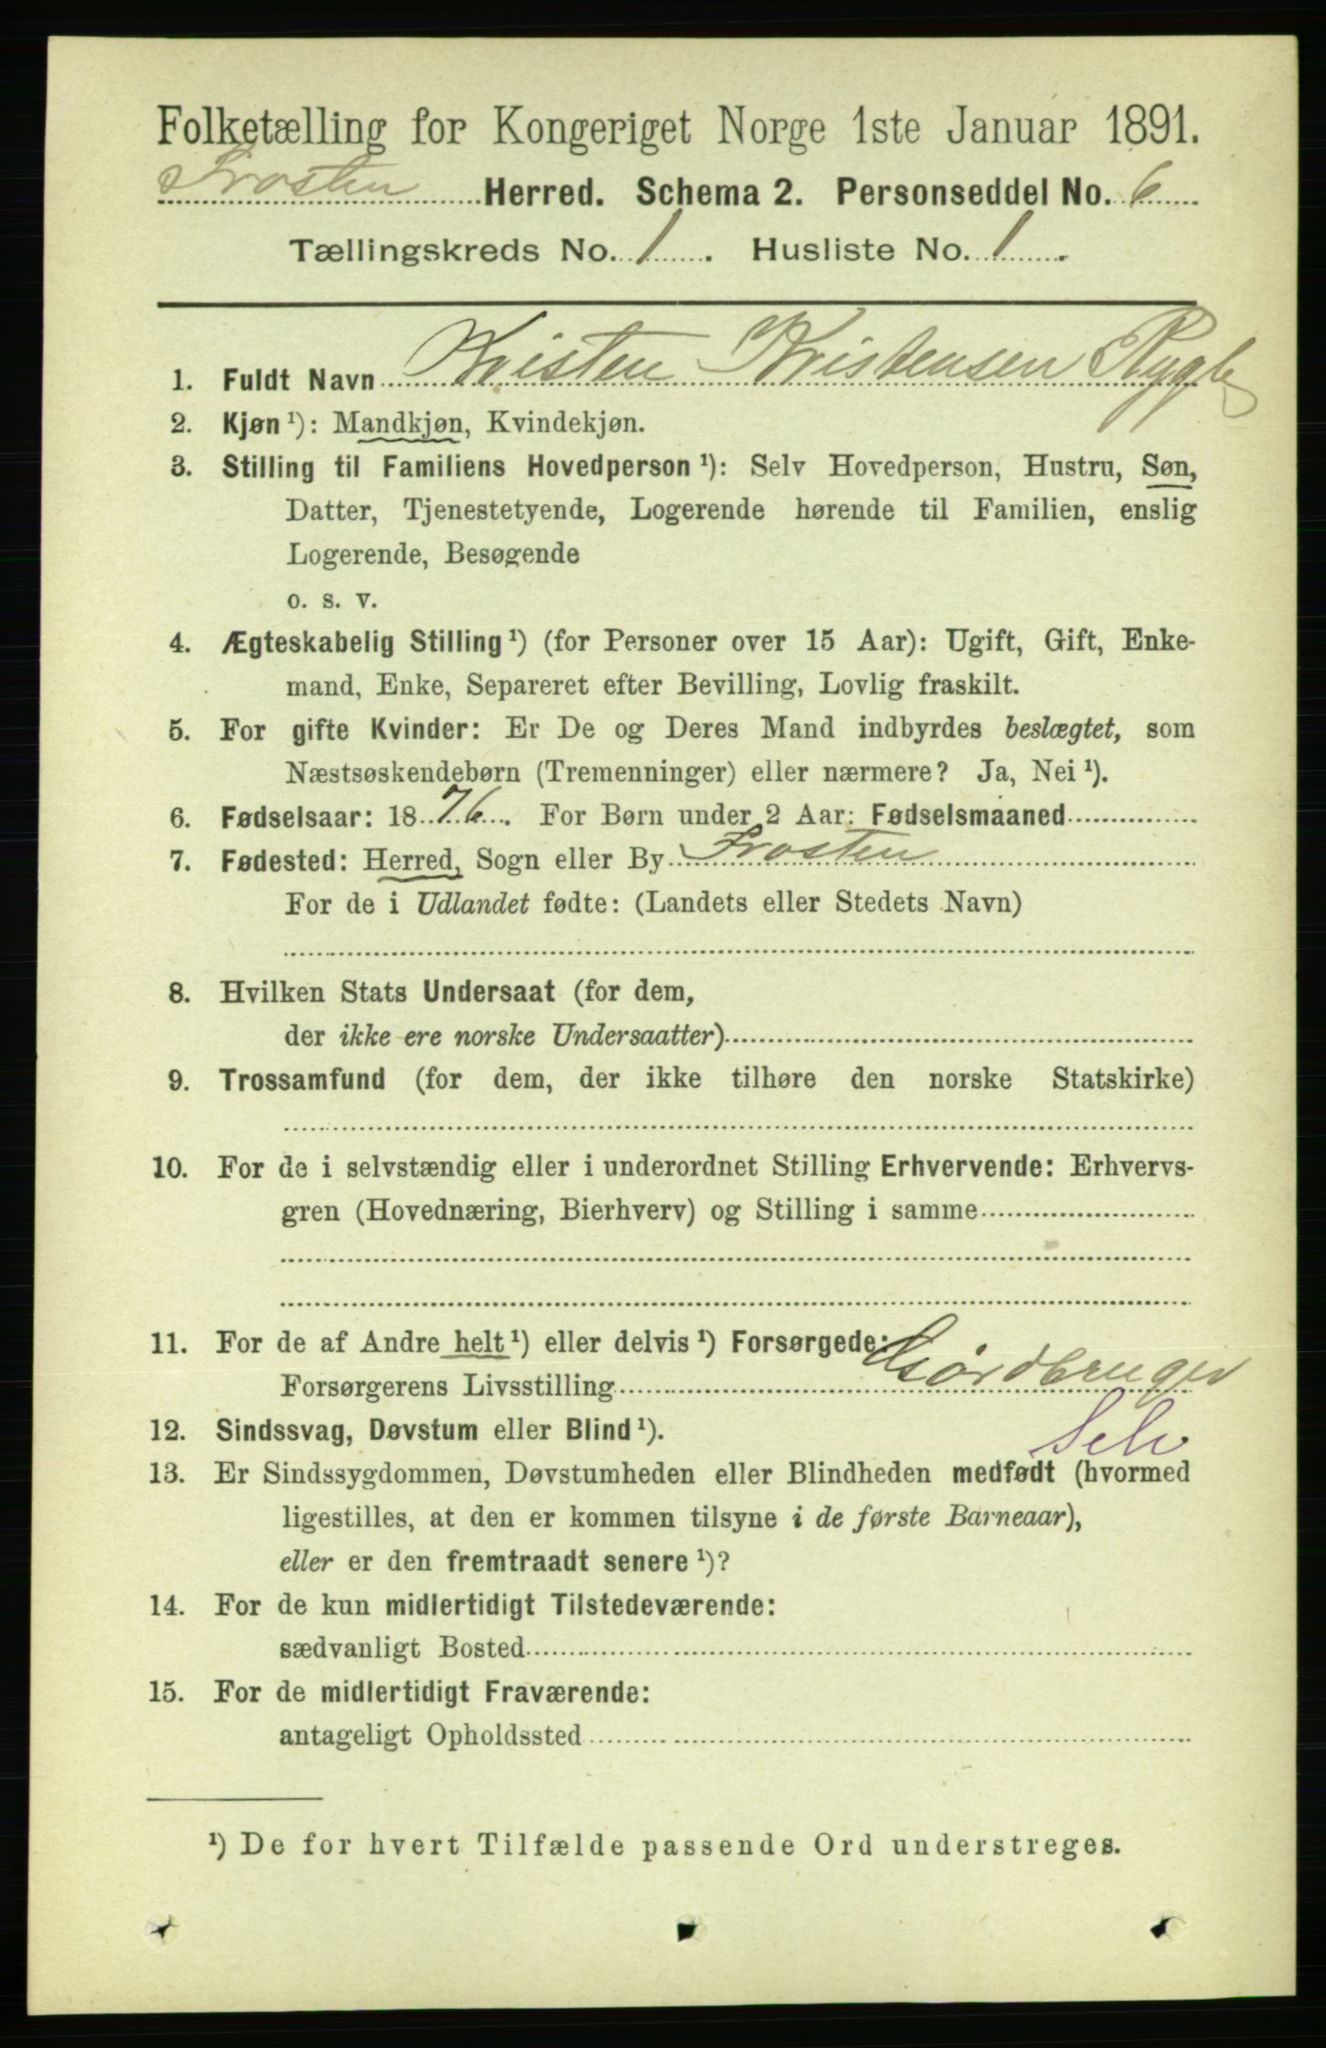 Folketælling for Kongeriget Norge 1ste Januar 1891.
Frosten Herred. Schema 2. Personseddel No. 6
Tællingskreds No. 1. Husliste No. 1.
1. Fuldt Navn Kristen Kristensen
2. Kjøn ¹): Mandkjøn, Kvindekjøn.
3. Stilling til Familiens Hovedperson ¹): Selv Hovedperson, Hustru, Søn,
Datter, Tjenestetyende, Logerende hørende til Familien, enslig
Logerende, Besøgende
o. s. v.
4. Ægteskabelig Stilling ¹) (for Personer over 15 Aar): Ugift, Gift, Enke-
mand, Enke, Separeret efter Bevilling, Lovlig fraskilt.
5. For gifte Kvinder: Er De og Deres Mand indbyrdes beslægtet, som
Næstsøskendebørn (Tremenninger) eller nærmere? Ja, Nei ¹).
6. Fødselsaar: 1876. For Børn under 2 Aar: Fødselsmaaned
7. Fødested: Herred, Sogn eller By Frosten
For de i Udlandet fødte: (Landets eller Stedets Navn)
8. Hvilken Stats Undersaat (for dem,
der ikke ere norske Undersaatter)
9. Trossamfund (for dem, der ikke tilhøre den norske Statskirke)
10. For de i selvstændig eller i underordnet Stilling Erhvervende: Erhvervs-
gren (Hovednæring, Bierhverv) og Stilling i samme
11. For de af Andre helt ¹) eller delvis ¹) Forsørgede:
Forsørgerens Livsstilling Gårdbruger
12. Sindssvag, Døvstum eller Blind ¹). Selv
13. Er Sindssygdommen, Døvstumheden eller Blindheden medfødt (hvormed
ligestilles, at den er kommen tilsyne i de første Barneaar),
eller er den fremtraadt senere ¹)?
14. For de kun midlertidigt Tilstedeværende:
sædvanligt Bosted
15. For de midlertidigt Fraværende:
antageligt Opholdssted
¹) De for hvert Tilfælde passende Ord understreges.